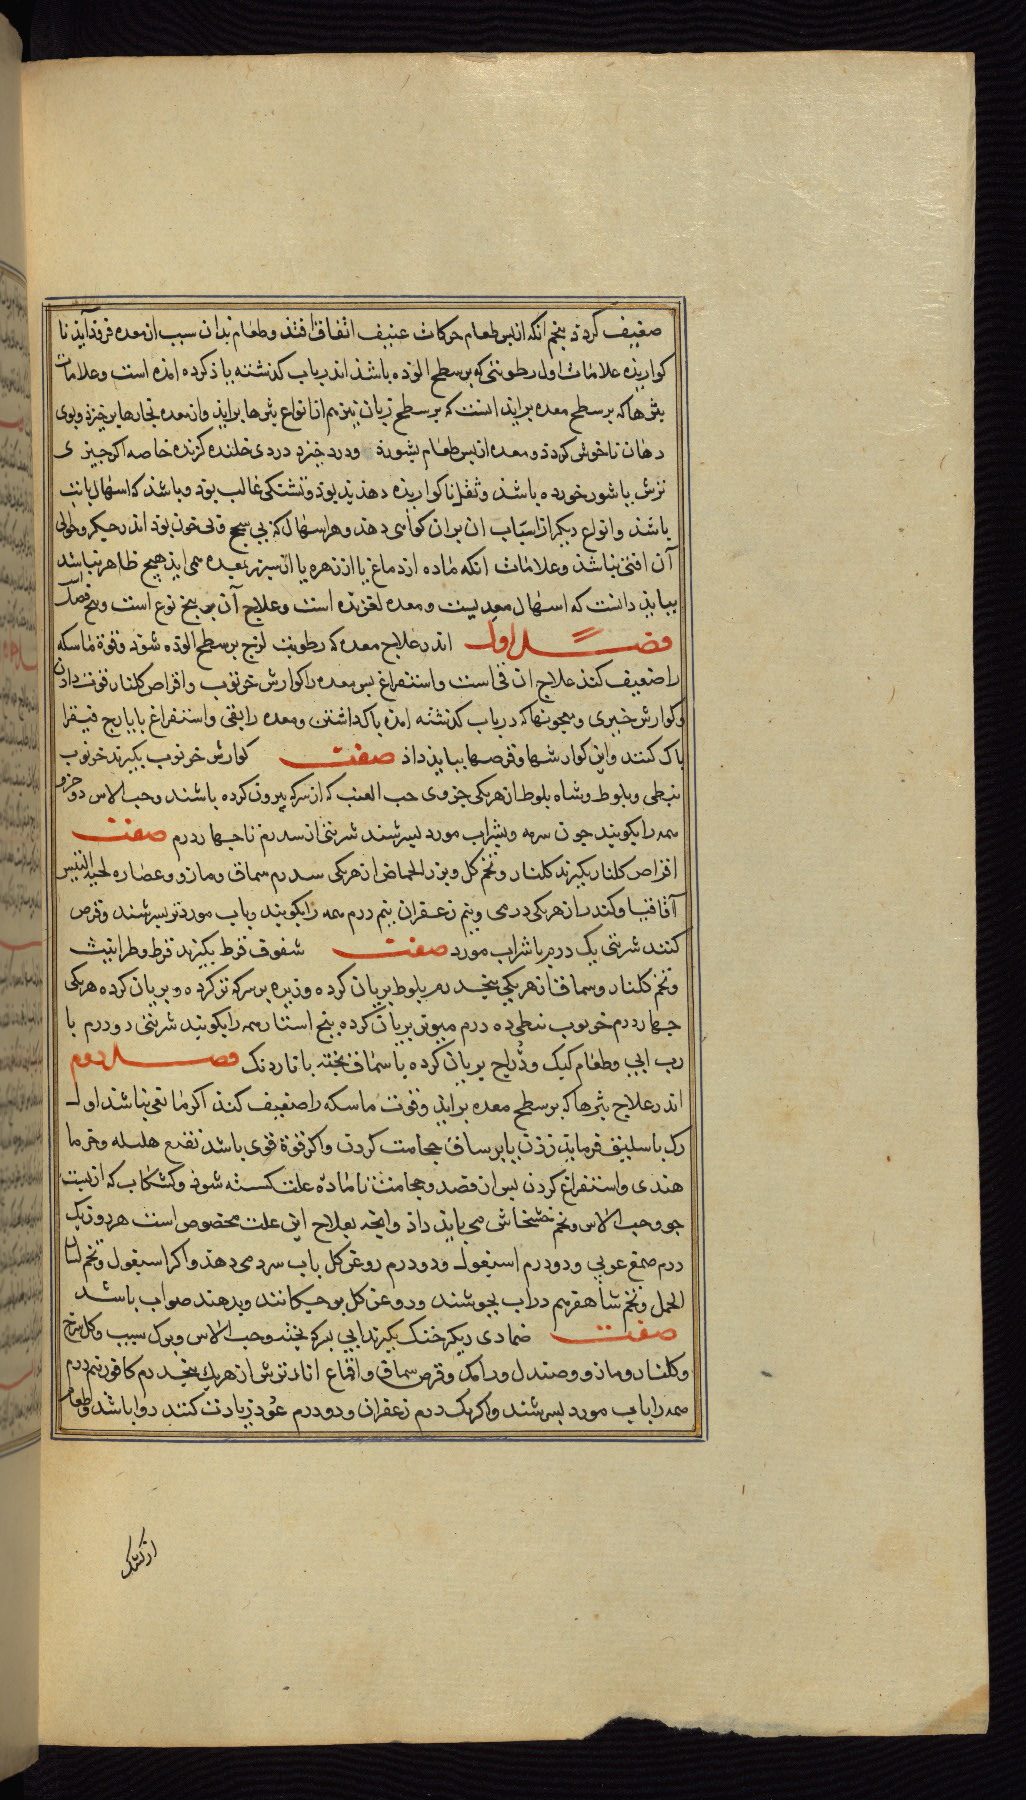 ضعیف کردد پنجم انکه از پس طعام حرکات عنیف اتفاق افتذ و طعام بدان سبب از معده فروذ آید نا
کواریذه علامات اول رطوبتی که بر سطح الوذه باشذ اندر باب کذشته یاذ کرده امذه است و علامات
بثرها که بر سطح معده برایذ انست که بر سطح زبان نیز هم از انواع بثرها برایذ و از معده بخارها برخیزذ و بوی
دهان ناخوش کردذ و معده از پس طعام بشورذ و درد خیزد دردی خلنده کزنده خاصه اکر چیزی
ترش یا شور خورده باشذ و ثفل ناکواریذه دهذ بذ بوذ و تشنکی غالب بوذ و باشذ که اسهال بانت
باشذ و انواع دیکر از اسباب ان بران کواهی دهد و هر اسهال که بی سحج و بی خون بوذ اندر جیکر و حوالی
آن افتی نباشذ و علامات انکه ماده از دماغ یا از زهره یا از سپرز بمعده می ایذ هیچ ظاهر نباشد
ببایذ دانست که اسهال معدیست و معده لغزنده است و علاج آن بر پنج نوع است و پنج فصل است
فصـــل اول اندر علاج معده که رطوبت لزج بر سطح الوذه شوذ و قوة ماسکه
را ضعیف کند علاج ان قی است و استفراغ پس معده را کوارش خرنوب و اقراص کلنار قوت دادن
و کوارش خبزی و معجونها که در باب کذشته امذه پاک داشتن و معده را بقی و استفراغ بایارج فیقرا
پاک کنند و این کوارشها و قرصها ببایذ داذ صفت کوارش خرنوب بکیرند خرنوب
نبطی و بلوط و شاه بلوط از هریکی جزوی حب العنب که از سرکه بیرون کرده باشند و حب الاس دو جزو
همه را بکوبند چون سرمه و بشراب مورد بسرشند شربتی از سه درم تا چهار درم صفت
اقراص کلنار بکیرند کلنار و تخم کل و بزر الحماض از هریکی سه درم سماق و مازو و عصاره لحیة التیس
آقاقیا و کندر از هریکی درمی و نیم زعفران نیم درم همه را بکوبند و باب مورد تر بسرشند و قرص
کنند شربتی یک درم با شراب مورد صفت سفوف قرط بکیرند قرط و طراثیث
و تخم کلنار و سماق از هریکی پنج درم بلوط بریان کرده و زیره بسرکه تر کرده و بریان کرده هریکی
چهار درم خرنوب نبطی ده درم میویز بریان کرده پنج استار همه را بکوبند شربتی دو درم با
رب ابی و طعام کبک و دراج بریان کرده با سماق پخته با ناردنک فصـــل دوم
اندر علاج بثرها که بر سطح معده برایذ و قوت ماسکه را ضعیف کند اکر مانعی نباشد اول
رک باسلیق فرمایذ زدن یا بر ساق حجامت کردن و اکر قوة قوی باشذ نقیع هلیله و خرما
هندی و استفراغ کردن پس از فصد و حجامت تا ماده علت کسسته شوذ و کشکاب که از پست
جو و حب الاس و تخم خشخاش می بایذ داذ و انچه بعلاج این علت مخصوص است هر روز یک
درم صمغ عربی و دو درم اسبغول و دو درم روغن کل باب سرد می دهذ و اکر اسبغول و تخم لسان
الحمل و تخم شاهفرهم در اب بجوشند و روغن کل بو حکانند و بدهند صواب باشد
صفت ضمادی دیکر خنک بکیرند ابی بسرکه پخته و حب الاس و برک سیب و کل سرخ
و کلنار و مازو و صندل و رامک و قرص سماق و اقماع انار ترش از هریک پنج درم کافور نیم درم
همه را باب مورد بسرشند و اکر یک درم زعفران و دو درم عود زیادت کنند روا باشد و طعام
از کشک